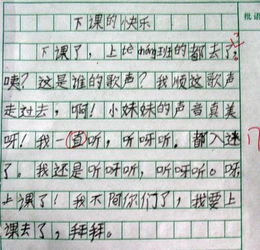 下课的快乐
下课了，上tè cháng班的都去
咦？这是谁的歌声？我顺这歌声
走过去，啊！小妹妹的声音真美
呀！我一直听，听呀听。都入迷
了。我还是听呀听，听呀听。呀
上课了！我不陪你们了，我要上
课去了，拜拜。